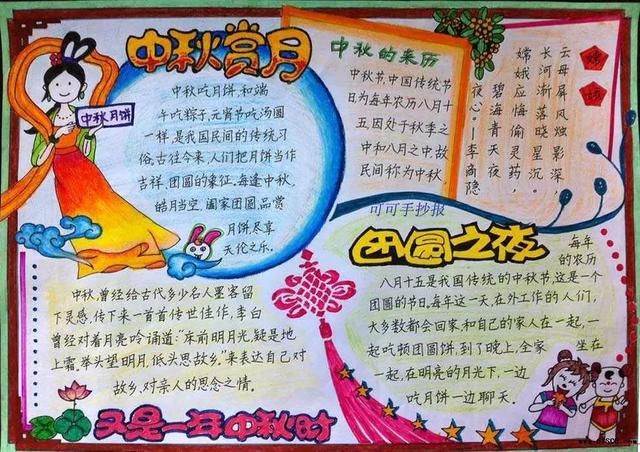 中秋赏月
中秋月饼
中秋吃月饼和端
午吃粽子,元宵节吃汤圆
一样,是我国民间的传统习
俗.古往今来,人们把月饼当作
吉祥,团圆的象征.每逢中秋,
皓月当空,阖家团圆,品赏
月饼尽享
天伦之乐.
中秋的来历
中秋节,中国传统节
日为每年农历八月十
五,因处于秋季之
中和八月之中,故
民间称为中秋
嫦娥
云母屏风烛影深,
长河渐落晓星沉。
嫦娥应悔偷灵药,
碧海青天夜
夜心。—李商隐
可可手抄报
团圆之夜
每年
的农历
八月十五是我国传统的中秋节,这是一个
团圆的节日,每年这一天,在外工作的人们,
大多数都会回家,和自己的家人在一起,一
起吃顿团圆饼,到了晚上,全家坐在
一起,在明亮的月光下,一边
吃月饼一边聊天.
中秋,曾经给古代多少名人墨客留
下灵感,传下来一首首传世佳作,李白
曾经对着月亮吟诵道:"床前明月光,疑是地
上霜.举头望明月,低头思故乡."来表达自己对
故乡,对亲人的思念之情.
又是一年中秋时